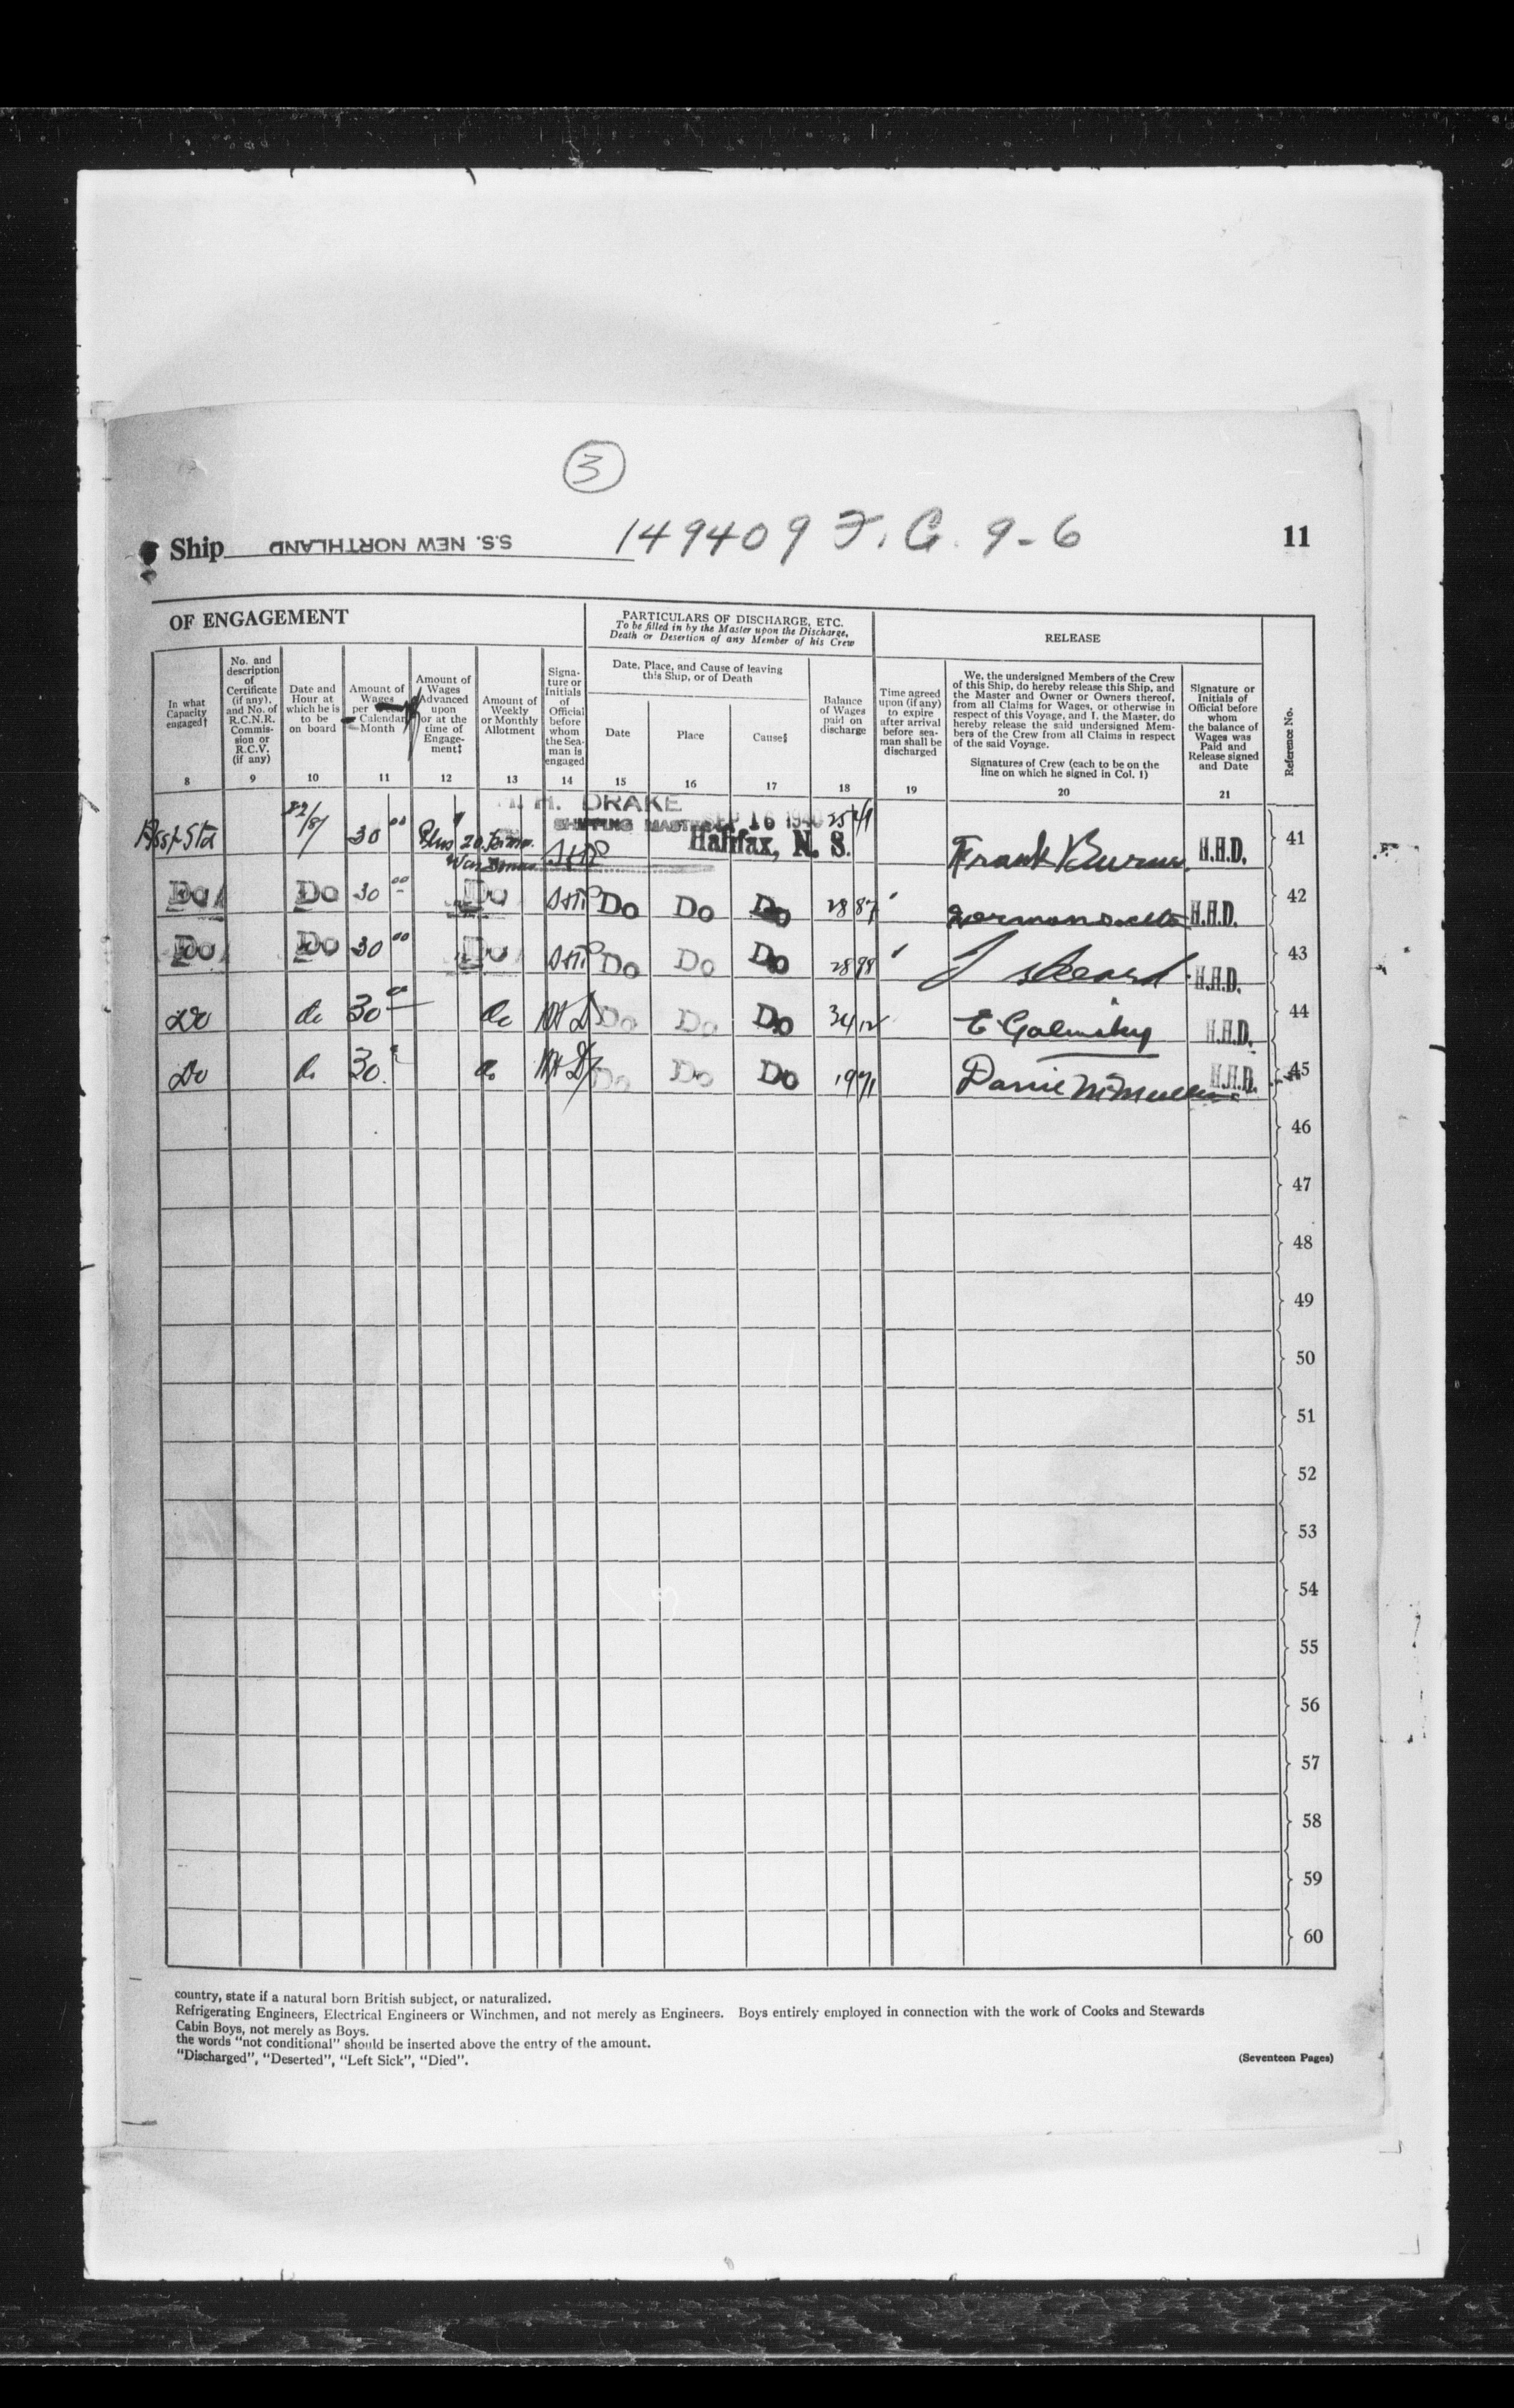 3
Ship S.S. NEW NORTHLAND 149409 F. G. 9-6 11
OF ENGAGEMENT
PARTICULARS OF DISCHARGE, ETC.
To be filled in by the Master upon the Discharge,
Death or Desertion of any Member of his Crew
RELEASE
In what
Capacity
engaged†
No. and
description
of
Certificate
(if any),
and No. of
R.C.N.R.
Commis-
sion or
R.C.V.
(if any)
Date and
Hour at
which he is
to be
on board
Amount of
Wages
per
Calendar
Month
Amount of
Wages
Advanced
upon
or at the
time of
Engage-
ment‡
Amount of
Weekly
or Monthly
Allotment
Signa-
ture or
Initials
of
Official
before
whom
the Sea-
man is
engaged
Date, Place, and Cause of leaving
this Ship, or of Death
Date
Place
Cause§
Balance
of Wages
paid on
discharge
Time agreed
upon (if any)
to expire
after arrival
before sea-
man shall be
discharged
We, the undersigned Members of the Crew
of this Ship, do hereby release this Ship, and
the Master and Owner or Owners thereof,
from all Claims for Wages, or otherwise in
respect of this Voyage, and I, the Master, do
hereby release the said undersigned Mem-
bers of the Crew from all Claims in respect
of the said Voyage.
Signatures of Crew (each to be on the
line on which he signed in Col. 1)
Signature or
Initials of
Official before
whom
the balance of
Wages was
Paid and
Release signed
and Date
Reference No.
8 9 10 11 12 13 14 15 16 17 18 19 20 21
H. DRAKE
SHIPPING MASTER SEP 16 1940
Halifax, N. S.
Asst Std 30 00 Plus 20 War Bonus Frank H.H.D. 41
Do Do 30 00 Do Do Do Do 28 87 H.H.D. 42
Do Do 30 00 Do Do Do Do 28 98 J H.H.D. 43
Do do 30 00 do Do Do Do 34 12 E Golinsky H.H.D. 44
Do do 30 do Do Do Do 19 71 H.H.D. 45
46
47
48
49
50
51
52
53
54
55
56
57
58
59
60
country, state if a natural born British subject, or naturalized.
Refrigerating Engineers, Electrical Engineers or Winchmen, and not merely as Engineers. Boys entirely employed in connection with the work of Cooks and Stewards
Cabin Boys, not merely as Boys.
the words "not conditional" should be inserted above the entry of the amount.
"Discharged", "Deserted", "Left Sick", "Died".
(Seventeen Pages)